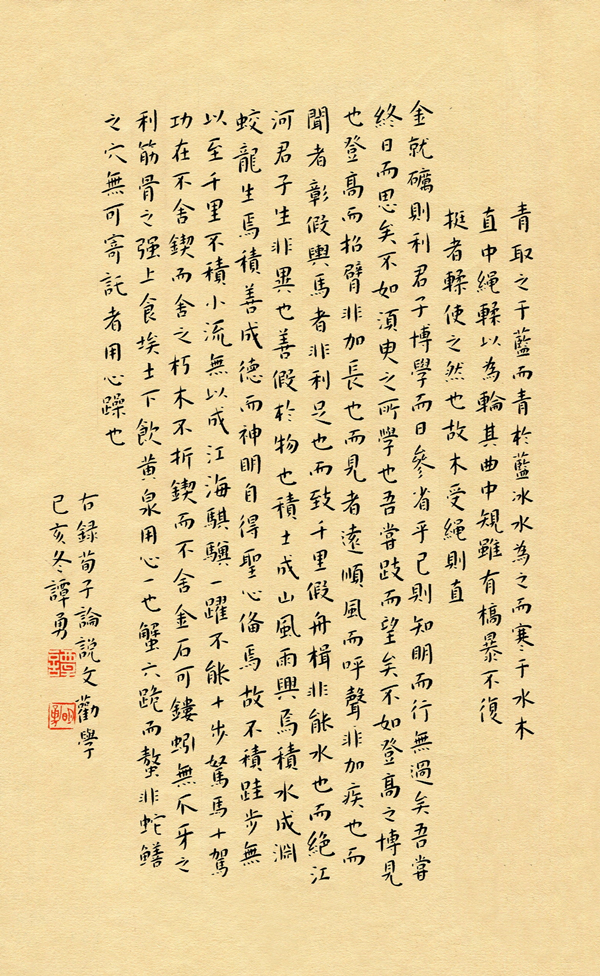 青取之于藍而青於藍冰水為之而寒于水木
直中繩輮以為輪其曲中規雖有槁暴不復
挺者輮使之然也故木受繩則直
金就礪則利君子博學而日參省乎己則知明而行無過矣吾嘗
終日而思矣不如須臾之所學也吾嘗跂而望矣不如登高之博見
也登高而招臂非加長也而見者遠順風而呼聲非加疾也而
聞者彰假輿馬者非利足也而致千里假舟楫非能水也而絕江
河君子生非異也善假於物也積土成山風雨興焉積水成淵
蛟龍生焉積善成德而神明自得聖心備焉故不積跬步無
以至千里不積小流無以成江海騏驥一躍不能十步駑馬十駕
功在不舍鍥而舍之朽木不折鍥而不舍金石可鏤蚓無爪牙之
利筋骨之强上食埃土下飲黄泉用心一也蟹六跪而螯非蛇鱔
之穴無可寄託者用心躁也
右録荀子論說文勸學
己亥冬譚勇